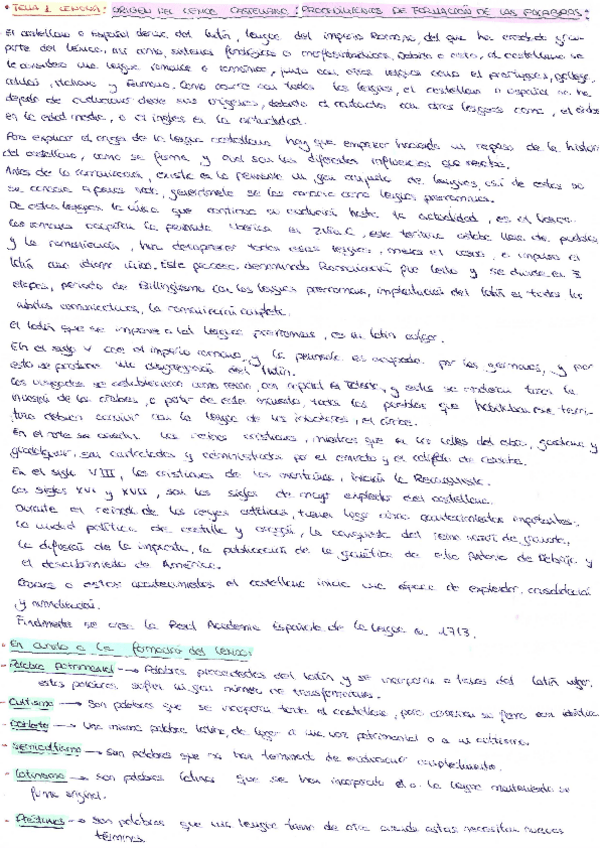 • TEMA 1 LENGUA: ORIGEN DEL LÉXICO CASTELLANO: PROCEDIMIENTOS DE FORMACIÓN DE LAS PALABRAS:
El castellano o español deriva del latín, lengua del imperio Romano, del que ha heredado gran
parte del léxico, así como, sistema fonológico o morfosintáctico. Debido a esto, al castellano se
le considera una lengua romance o románica, junto con otras lenguas como el portugués, gallego,
catalán, italiano y francés. Como ocurre con todas las lenguas, el castellano o español no ha
dejado de evolucionar desde sus orígenes, debido al contacto con otras lenguas como, el árabe
en la edad media, o el inglés en la actualidad.
Para explicar el origen de la lengua castellana hay que empezar haciendo un repaso de la historia
del castellano, como se forma, y cual son las diferentes influencias que recibe.
Antes de la romanización, existe en la península un gran conjunto de lenguas, casi de estas no
se conoce apenas nada, generalmente se las conoce como lenguas prerromanas.
De estas lenguas la única que continua su evolución hasta la actualidad, es el vasco.
Los romanos ocuparon la península Ibérica en 218 a.C, este territorio estaba lleno de pueblos
y la romanización, hace desaparecer todas estas lenguas, menos el vasco, e impuso el
latín como idioma único. Este proceso denominado Romanización fue lento y se divide en 3
etapas, periodo de Bilingüismo con las lenguas prerromanas, implantación del latín en todos los
ámbitos comunicativos, la romanización completa.
El latín que se impone a las lenguas prerromanas, es un latín vulgar.
En el siglo V cae el imperio romano, y la península es ocupada por los germanos, y por
esto se produce una disgregación del latín.
Los visigodos se establecieron como reino, con capital en Toledo, y estos se mantienen hasta la
invasión de los árabes, a partir de este momento, todos los pueblos que habitaban ese terri-
torio deben convivir con la lengua de los invasores, el árabe.
En el norte se los reinos cristianos, mientras que en los valles del ebro, guadiana y
guadalquivir, son controlados y administrados por el emirato y el califato de córdoba.
En el siglo VIII, los cristianos de las montañas, inician la Reconquista.
Los siglos XVI y XVII, son los siglos de mayor esplendor del castellano.
Durante el reinado de los reyes católicos, tienen lugar varios acontecimientos importantes:
La unidad política de castilla y aragón, la conquista del reino nazarí de granada,
la difusión de la imprenta, la publicación de la gramática de elio Antonio de Nebrija y
el descubrimiento de América.
Gracias a estos acontecimientos el castellano inicia una época de esplendor, consolidación
y normalización.
Finalmente se crea la Real Academia Española de la Lengua en 1713.
• En cuanto a la formación del léxico:
- Palabra patrimonial → Palabras procedentes del latín y se incorporan a través del latín vulgar,
estas palabras sufren un gran número de transformaciones.
- Cultismo → Son palabras que se incorporan tarde al castellano, pero conservan su forma casi idéntica.
- Doblete → Una misma palabra latina da lugar a una voz patrimonial o a un cultismo.
- Semicultismo → Son palabras que no han terminado de evolucionar completamente.
- Latinismo → Son palabras latinas que se han incorporado a la lengua manteniendo su
forma original.
- Préstamos → Son palabras que una lengua toma de otra cuando estas necesitan nuevos
términos.